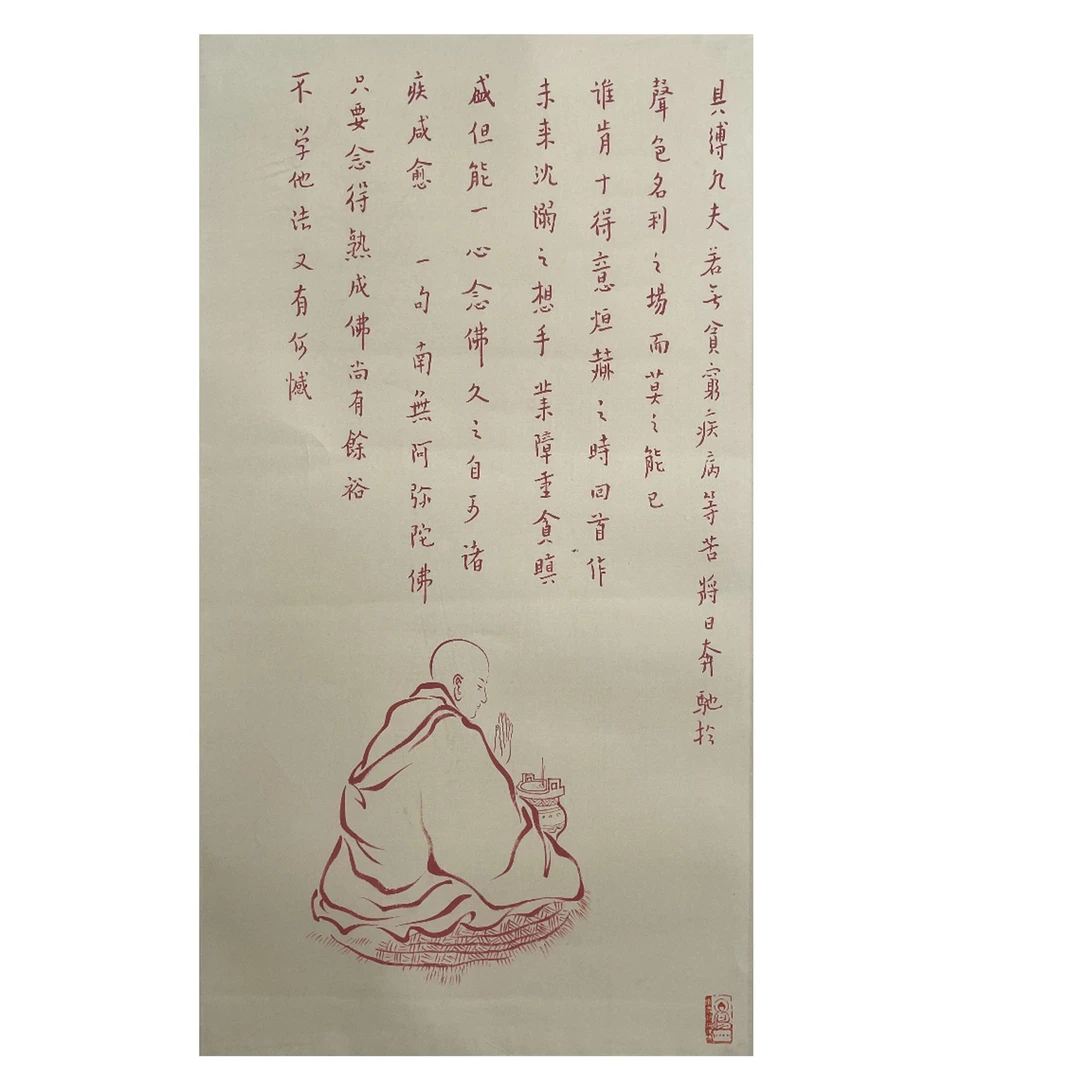 具缚凡夫若无貪窮疾病等苦將日奔馳於
聲色名利之場而莫之能已
谁肯于得意烜赫之時回首作
未来沈溺之想乎業障重貪瞋
盛但能一心念佛久之自可诸
疾咸愈 一句南無阿弥陀佛
只要念得熟成佛尚有餘裕
不学他法又有何憾